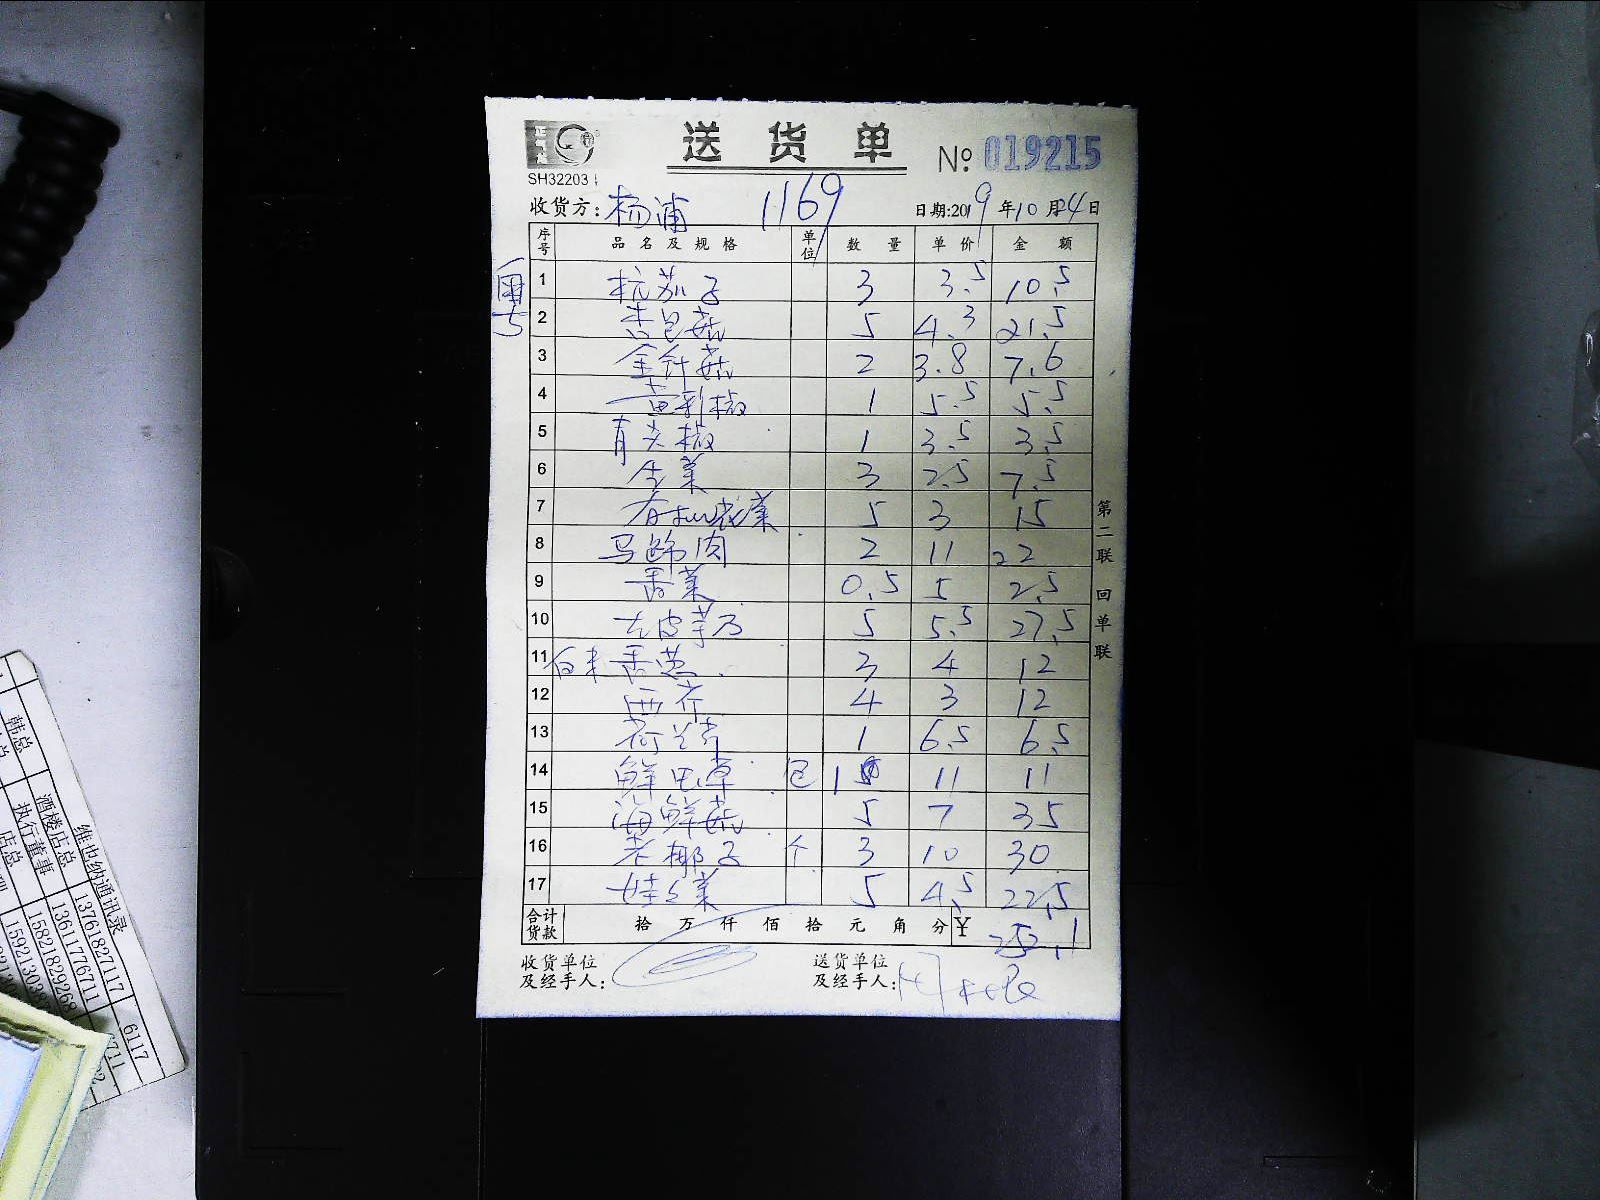 送货单
No. 019215
SH32203
收货方: 杨浦 1169 日期:2019年10月24日
粤5
序号 品名及规格 单位 数量 单价 金额
1 杭茄子 3 3.5 10.5
2 杏包菇 5 4.3 21.5
3 金针菇 2 3.8 7.6
4 黄彩椒 1 5.5 5.5
5 青尖椒 1 3.5 3.5
6 生菜 3 2.5 7.5
7 有机花菜 5 3 15
8 马蹄肉 2 11 22
9 香菜 0.5 5 2.5
10 去皮芋艿 5 5.5 27.5
11 香葱 3 4 12
12 西芹 4 3 12
13 荷兰芹 1 6.5 6.5
14 鲜虫草 包 1 11 11
15 海鲜菇 5 7 35
16 老椰子 个 3 10 30
17 娃娃菜 5 4.5 22.5
合计货款 拾 万 仟 佰 拾 元 角 分 ¥ 252.1
收货单位及经手人:
送货单位及经手人:
第二联 回单联
韩总
酒楼店总
执行董事
店总
维也纳通讯录
13761827117
13611776711
15821829268
6117